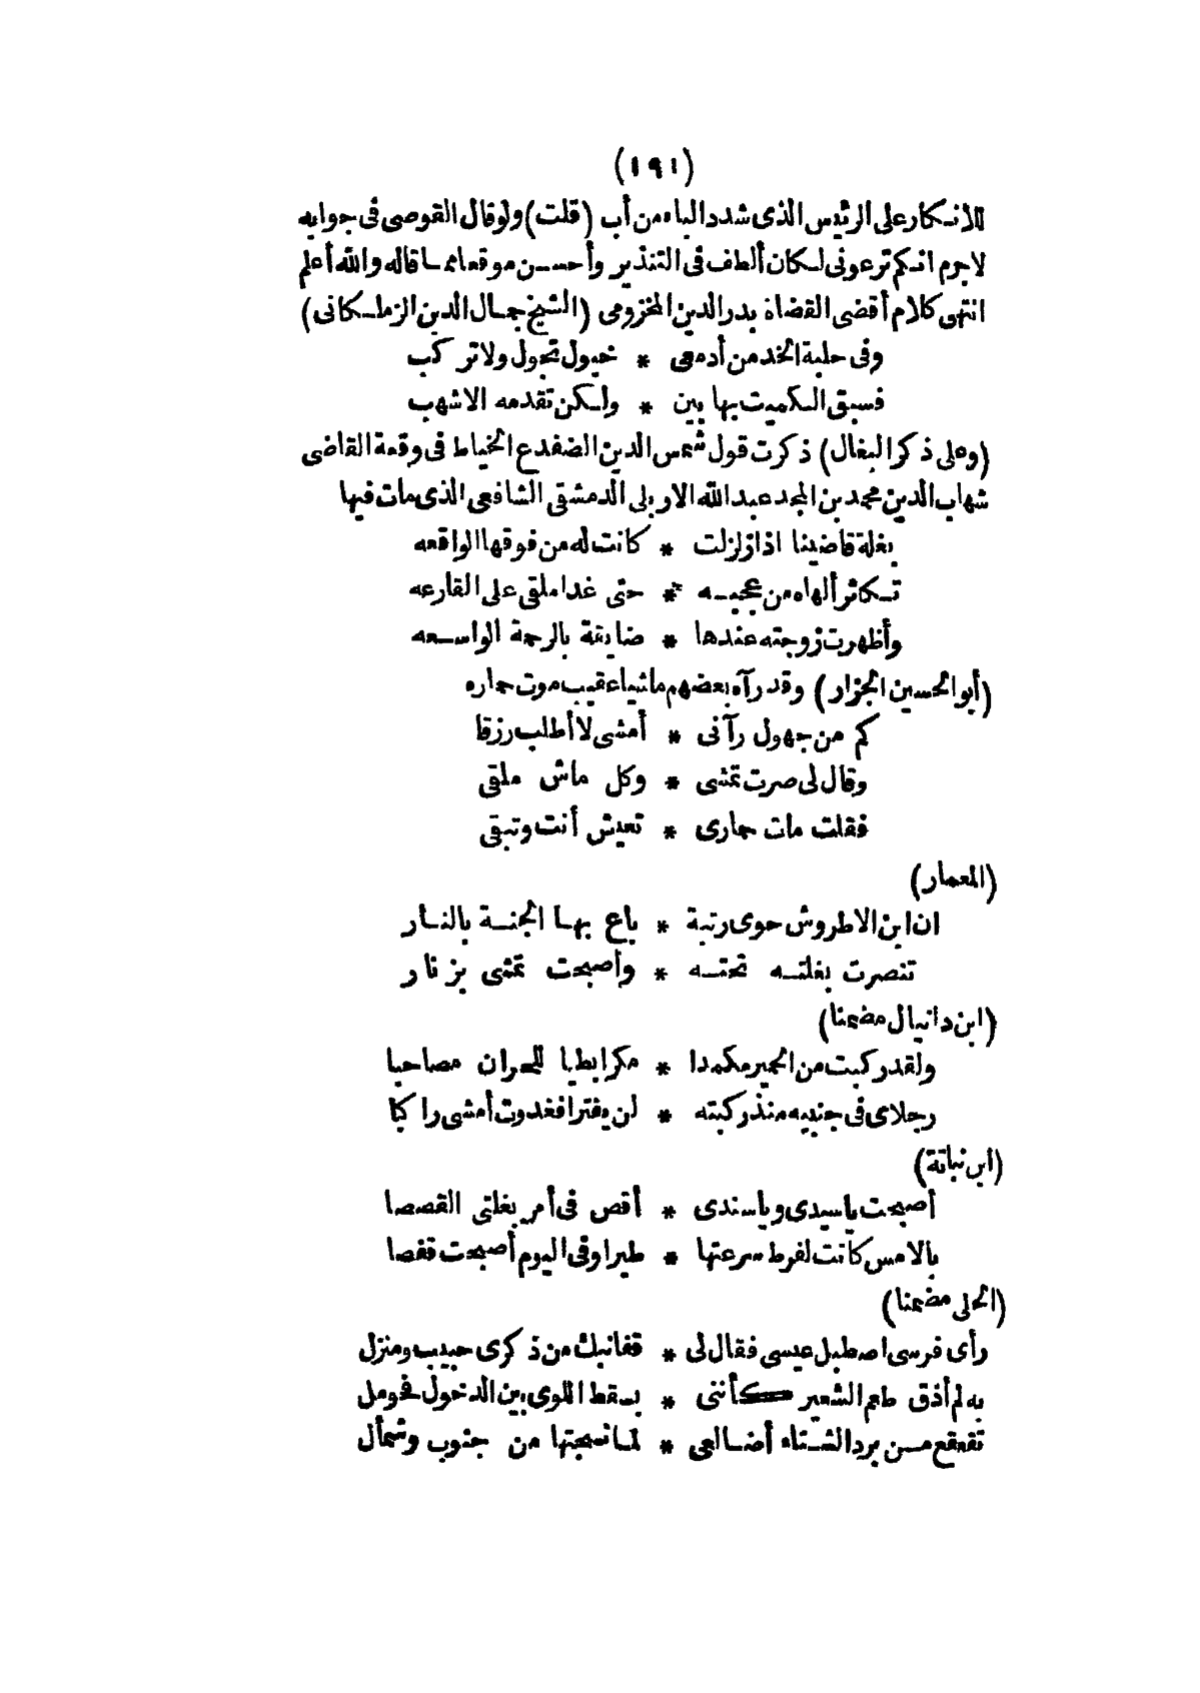 (١٩١)
للانكار على الرئيس الذى شدد الباء من أب (قلت) ولو قال القوصى فى جوابه
لا جرم انكم ترعونى لكان ألطف فى التنذير وأحسن موقعا مما قاله والله أعلم
انتهى كلام أقضى القضاة بدر الدين المخزومى (الشيخ جمال الدين الزملكانى)
وفى حلبة الخد من أدمعى * خيول تجول ولا تركب
فسبق الكميت بها بين * ولكن تقدمه الاشهب
(وعلى ذكر البغال) ذكرت قول شمس الدين الضفدع الخياط فى وقعة القاضى
شهاب الدين محمد بن المجد عبد الله الاربلى الدمشقى الشافعى الذى مات فيها
بغلة قاضينا اذا زلزلت * كانت له من فوقها الواقعه
تكاثر ألهاه من عجبه * حتى غدا ملقى على القارعه
وأظهرت زوجته عندها * ضايقة بالرحمة الواسعه
(أبو الحسين الجزار) وقد رآه بعضهم ماشيا عقيب موت حماره
كم من جهول رآنى * أمشى لا أطلب رزقا
وقال لى صرت تمشى * وكل ماش ملقى
فقلت مات حمارى * تعيش أنت وتبقى
(المعمار)
ان ابن الاطروش حوى رتبة * باع بها الجنة بالنار
تنصرت بغلته تحته * وأصبحت تمشى بزنار
(ابن دانيال مضمنا)
ولقد ركبت من الحمير مكمدا * مكرا بطيا للحران مصاحبا
رجلاى فى جنبيه منذ ركبته * لن يفترا فغدوت أمشى راكبا
(ابن نباتة)
أصبحت ياسيدى وياسندى * أقص فى أمر بغلتى القصصا
بالامس كانت لفرط سرعتها * طيرا وفى اليوم أصبحت قفصا
(الحلى مضمنا)
رأى فرسى اصطبل عيسى فقال لى * قفا نبك من ذكرى حبيب ومنزل
به لم أذق طعم الشعير كأننى * بسقط اللوى بين الدخول فحومل
تقعقع من برد الشتاء أضالعى * لما نسجتها من جنوب وشمأل